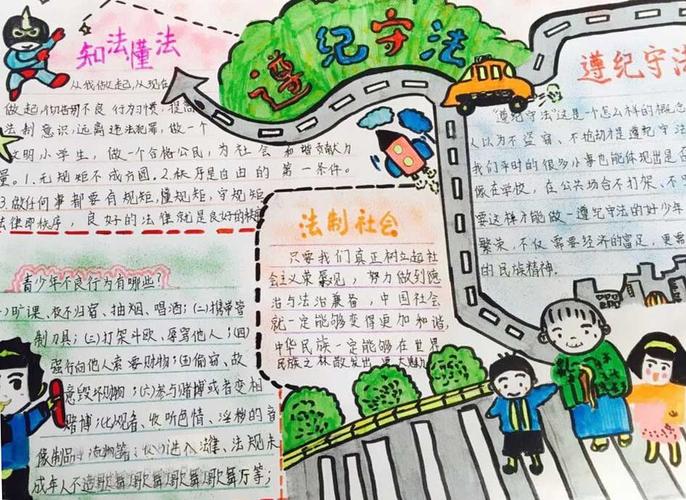 遵纪守法
知法懂法
从我做起,从现在
做起,彻底
不良行为习惯,提高
法制意识,远离违法犯罪,做一个
文明小学生,做一个合格公民,为社会和谐贡献力
量。1.无规矩不成方圆。2.秩序是自由的第一条件。
3.做任何事都要有规矩,懂规矩,守规矩
法律即秩序,良好的法律就是良好的秩
青少年不良行为有哪些?
旷课、夜不归宿、抽烟、喝酒;(二)携带管
制刀具;(三)打架斗殴、辱骂他人;(四)
强行向他人索要财物;(五)偷窃、故
意毁坏财物;(六)参与赌博或者变相
赌博;(七)观看、收听色情、淫秽的音
像制品、读物等;(八)进入法律、法规未
成年人不适
歌舞厅等;
法制社会
只要我们真正树立起社
会主义荣辱观,努力做到德
治与法治兼备,中国社会
就一定能够变得更加和谐,
中华民族一定能够在世界
民族之林散发出更大魅力
遵纪守法
“遵纪守法”这是一个怎么样的概念
人以为不盗窃、不抢劫才是遵纪守法
我们平时的很多小事也能体现出是否
像在学校,在公共场合不打架、不
要这样才能做一遵纪守法的好少年
繁荣,不仅需要经济的富足,更需
的民族精神.